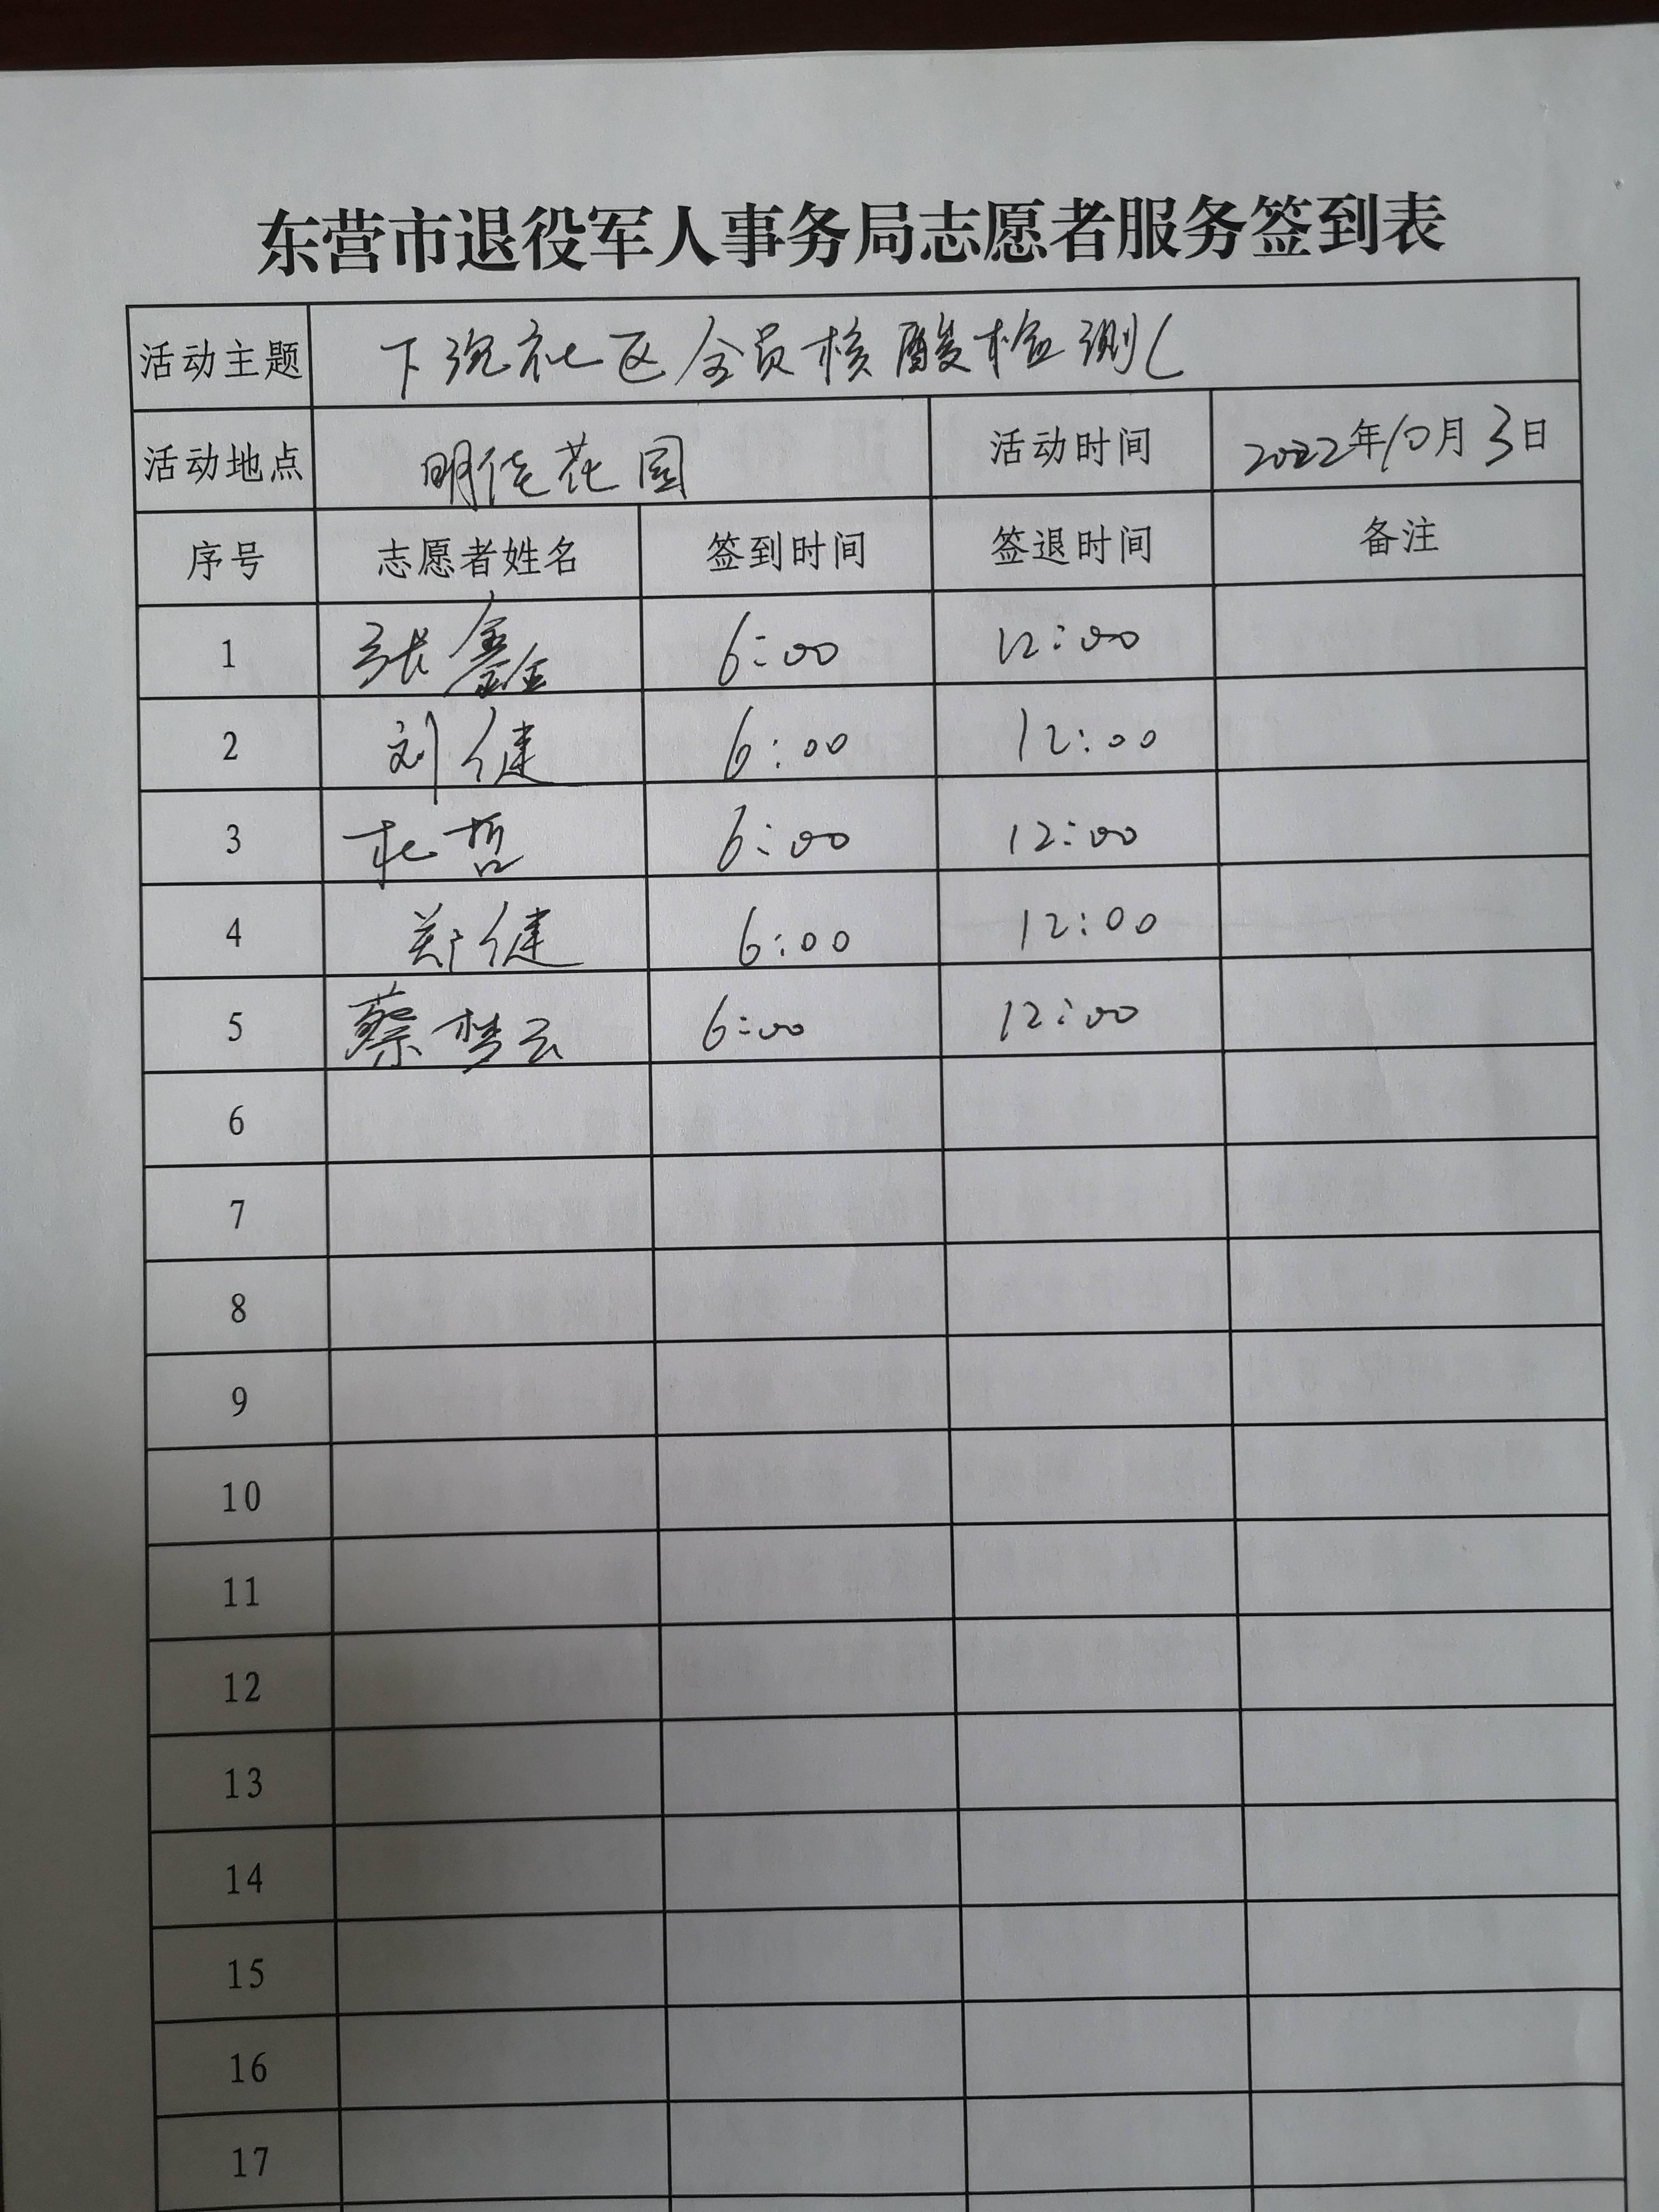 东营市退役军人事务局志愿者服务签到表
活动主题 下沉社区全员核酸检测
活动地点 明佳花园 活动时间 2022年10月3日
序号 志愿者姓名 签到时间 签退时间 备注
1 张鑫 6:00 12:00
2 刘健 6:00 12:00
3 杜哲 6:00 12:00
4 郑健 6:00 12:00
5 蔡梦云 6:00 12:00
6
7
8
9
10
11
12
13
14
15
16
17